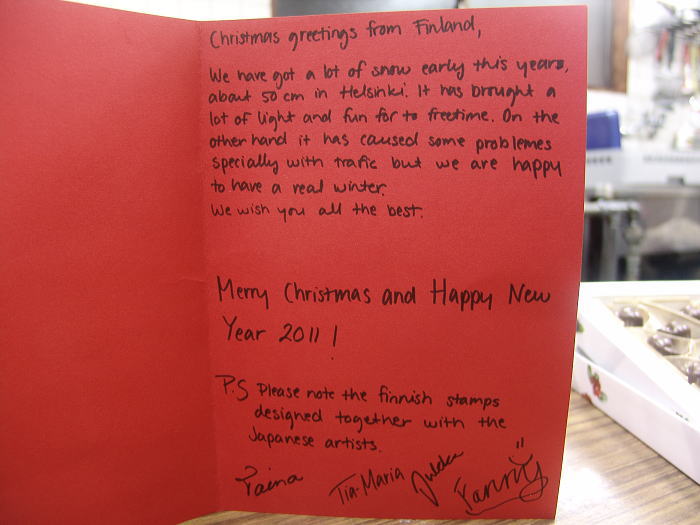 Christmas greetings from Finland,
We have got a lot of snow early this years,
about 50 cm in Helsinki. It has brought a
lot of light and fun for to freetime. On the
other hand it has caused some problemes
specially with trafic but we are happy
to have a real winter.
We wish you all the best.
Merry Christmas and Happy New
Year 2011!
P.S Please note the finnish stamps
designed together with the
Japanese artists.
Paina Tia-Maria Fanny